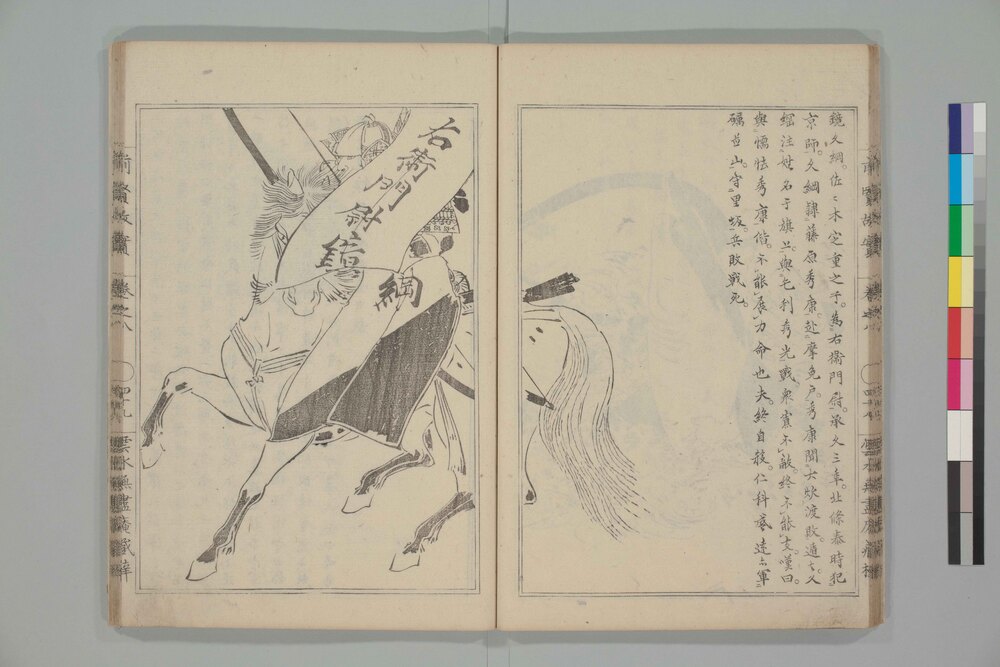 鏡久綱。佐々木定重之子。為右衛門尉。承久三年。北條泰時犯
京師。久綱隷藤原秀康。赴摩免戸。秀康聞大炊渡敗遁之。久
綱注姓名于旗上。與毛利秀光戰。衆寡不敵。終不能支。嘆曰
與懦怯秀康偕。不能展力命也夫。終自殺。仁科
山。守里坂。兵敗戰死。
右衛門尉鏡
綱
前賢故實
卷之八
雲水無盡庵藏梓